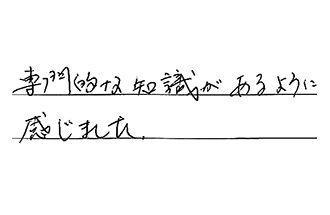 専門的な知識があるように
感じました.